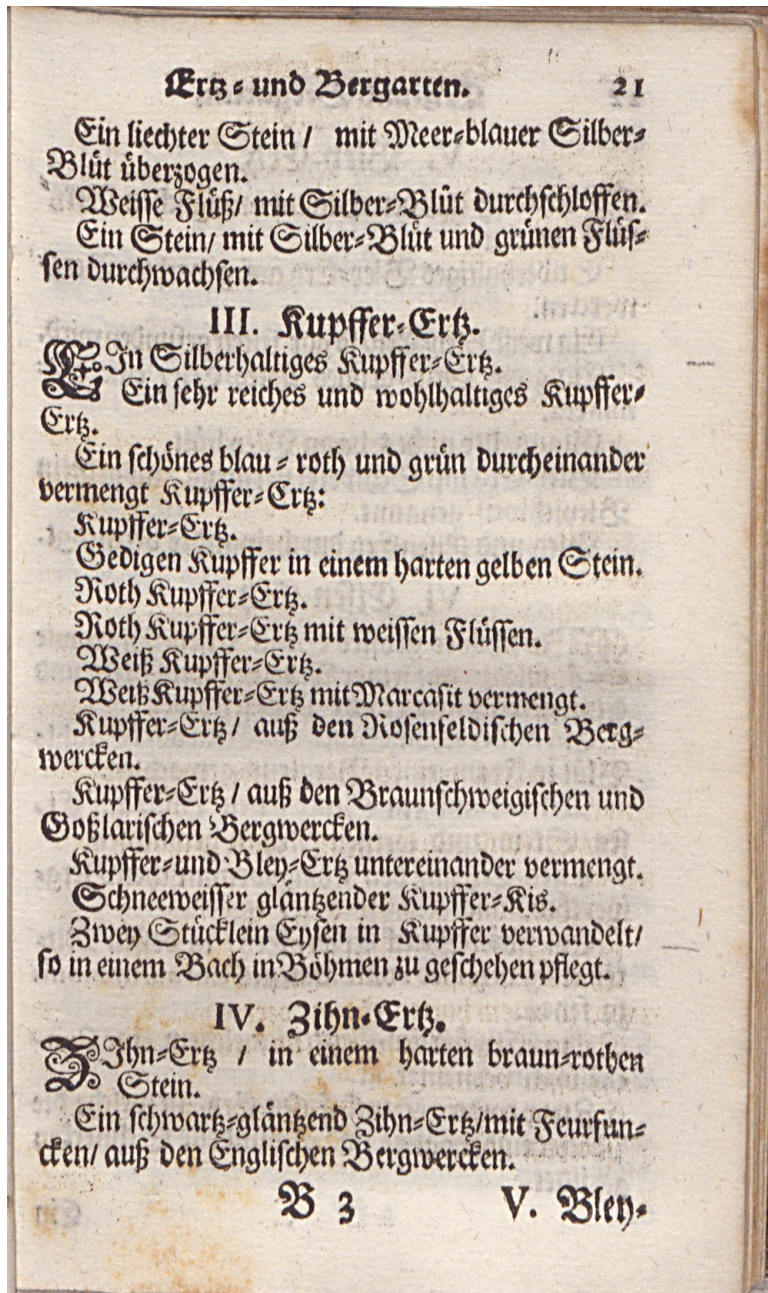 Ertz- und Bergarten. 21
Ein liechter Stein / mit Meer-blauer Silber-
Blüt überzogen.
Weisse Flüß/ mit Silber-Blüt durchschloffen.
Ein Stein/ mit Silber-Blüt und grünen Flüs-
sen durchwachsen.
III. Kupffer-Ertz.
EIn Silberhaltiges Kupffer-Ertz.
Ein sehr reiches und wohlhaltiges Kupffer-
Ertz.
Ein schönes blau- roth und grün durcheinander
vermengt Kupffer-Ertz:
Kupffer-Ertz.
Gedigen Kupffer in einem harten gelben Stein.
Roth Kupffer-Ertz.
Roth Kupffer-Ertz mit weissen Flüssen.
Weiß Kupffer-Ertz.
Weiß Kupffer-Ertz mit Marcasit vermengt.
Kupffer-Ertz/ auß den Rosenfeldischen Berg-
wercken.
Kupffer-Ertz / auß den Braunschweigischen und
Goßlarischen Bergwercken.
Kupffer- und Bley-Ertz untereinander vermengt.
Schneeweisser gläntzender Kupffer-Kis.
Zwey Stücklein Eysen in Kupffer verwandelt/
so in einem Bach in Böhmen zu geschehen pflegt.
IV. Zihn-Ertz.
ZIhn-Ertz / in einem harten braun-rothen
Stein.
Ein schwartz-gläntzend Zihn-Ertz/ mit Feurfun-
cken/ auß den Englischen Bergwercken.
B 3 V. Bley-